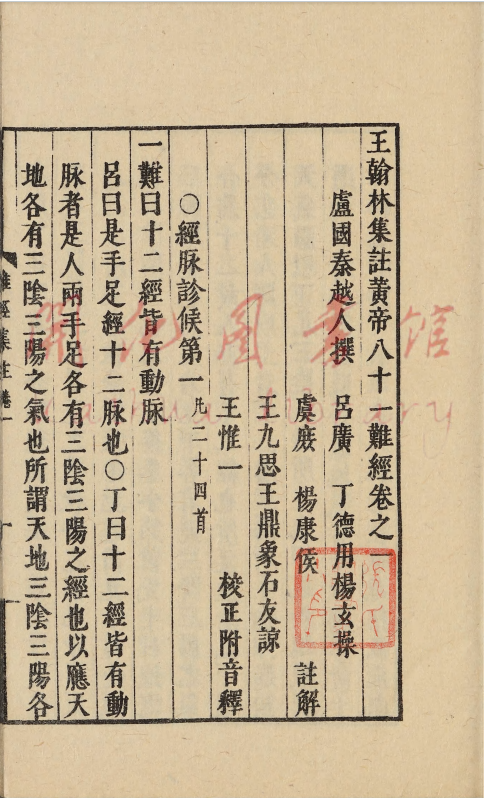 王翰林集註黃帝八十一難經卷之一
盧國秦越人撰　呂廣　丁德用楊玄操
虞庻　楊康侯　註解
王九思王鼎象石友諒
王惟一　校正附音釋
○經脉診候第一 凡二十四首
一難曰十二經皆有動脉
呂曰是手足經十二脉也○丁曰十二經皆有動
脉者是人兩手足各有三陰三陽之經也以應天
地各有三陰三陽之氣也所謂天地三陰三陽各
難經集註卷一
書館